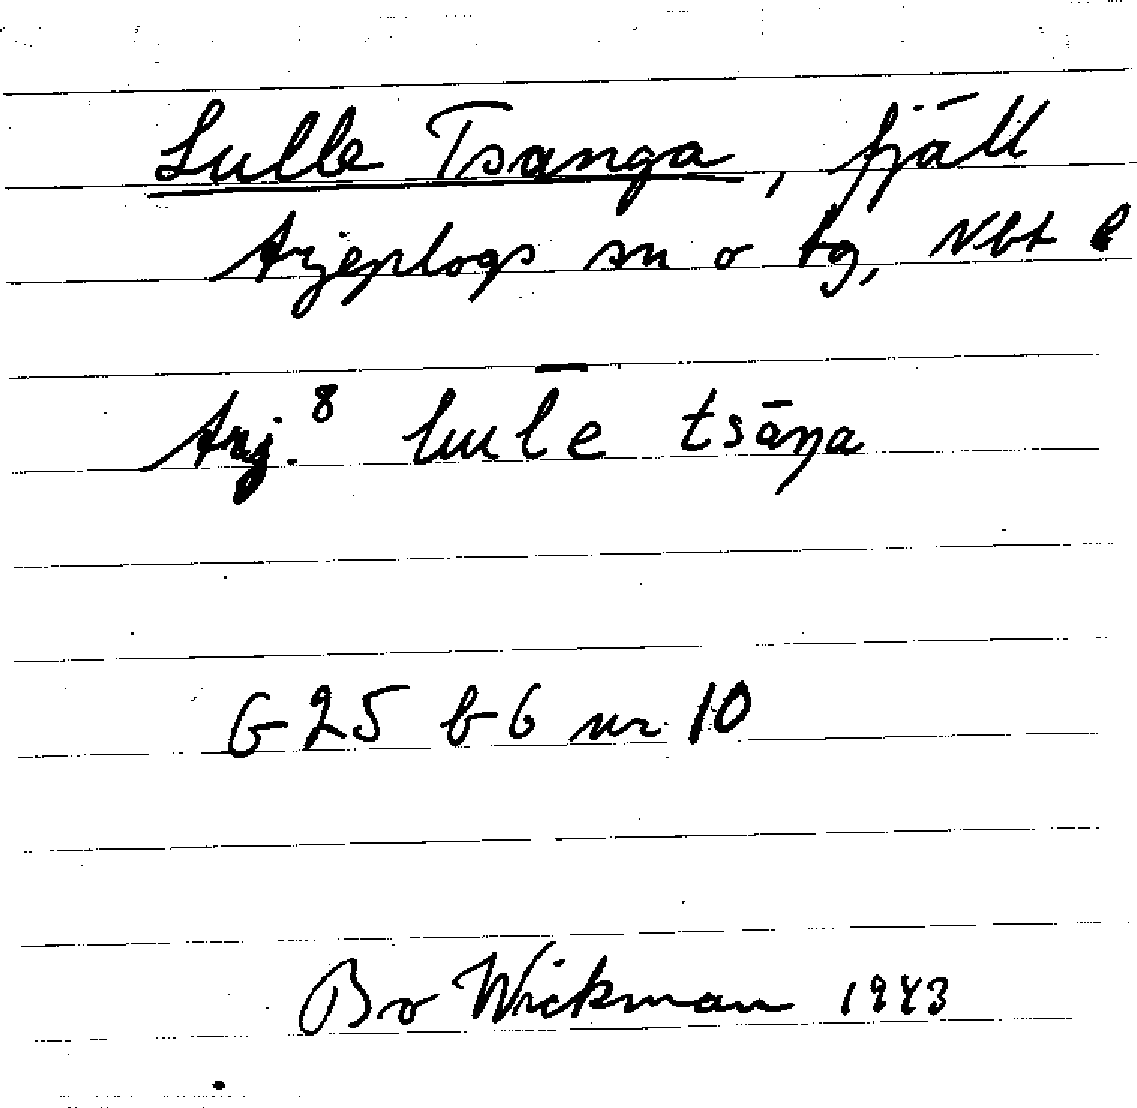 Lulle Tsanga, fjäll
Arjeplogs sn o tg, Nbt l
Arj.⁸ lule tsāŋa
G 25 b 6 nr 10
Bo Wickman 1943